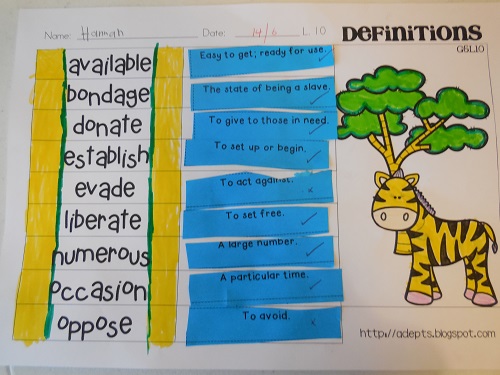 Name: Hannah Date: 14/6 L.10 DEFINITIONS
G5L10
available Easy to get; ready for use.
bondage The state of being a slave.
donate To give to those in need.
establish To set up or begin.
evade To act against.
liberate To set free.
numerous A large number.
occasion A particular time.
oppose To avoid.
http://adepts.blogspot.com